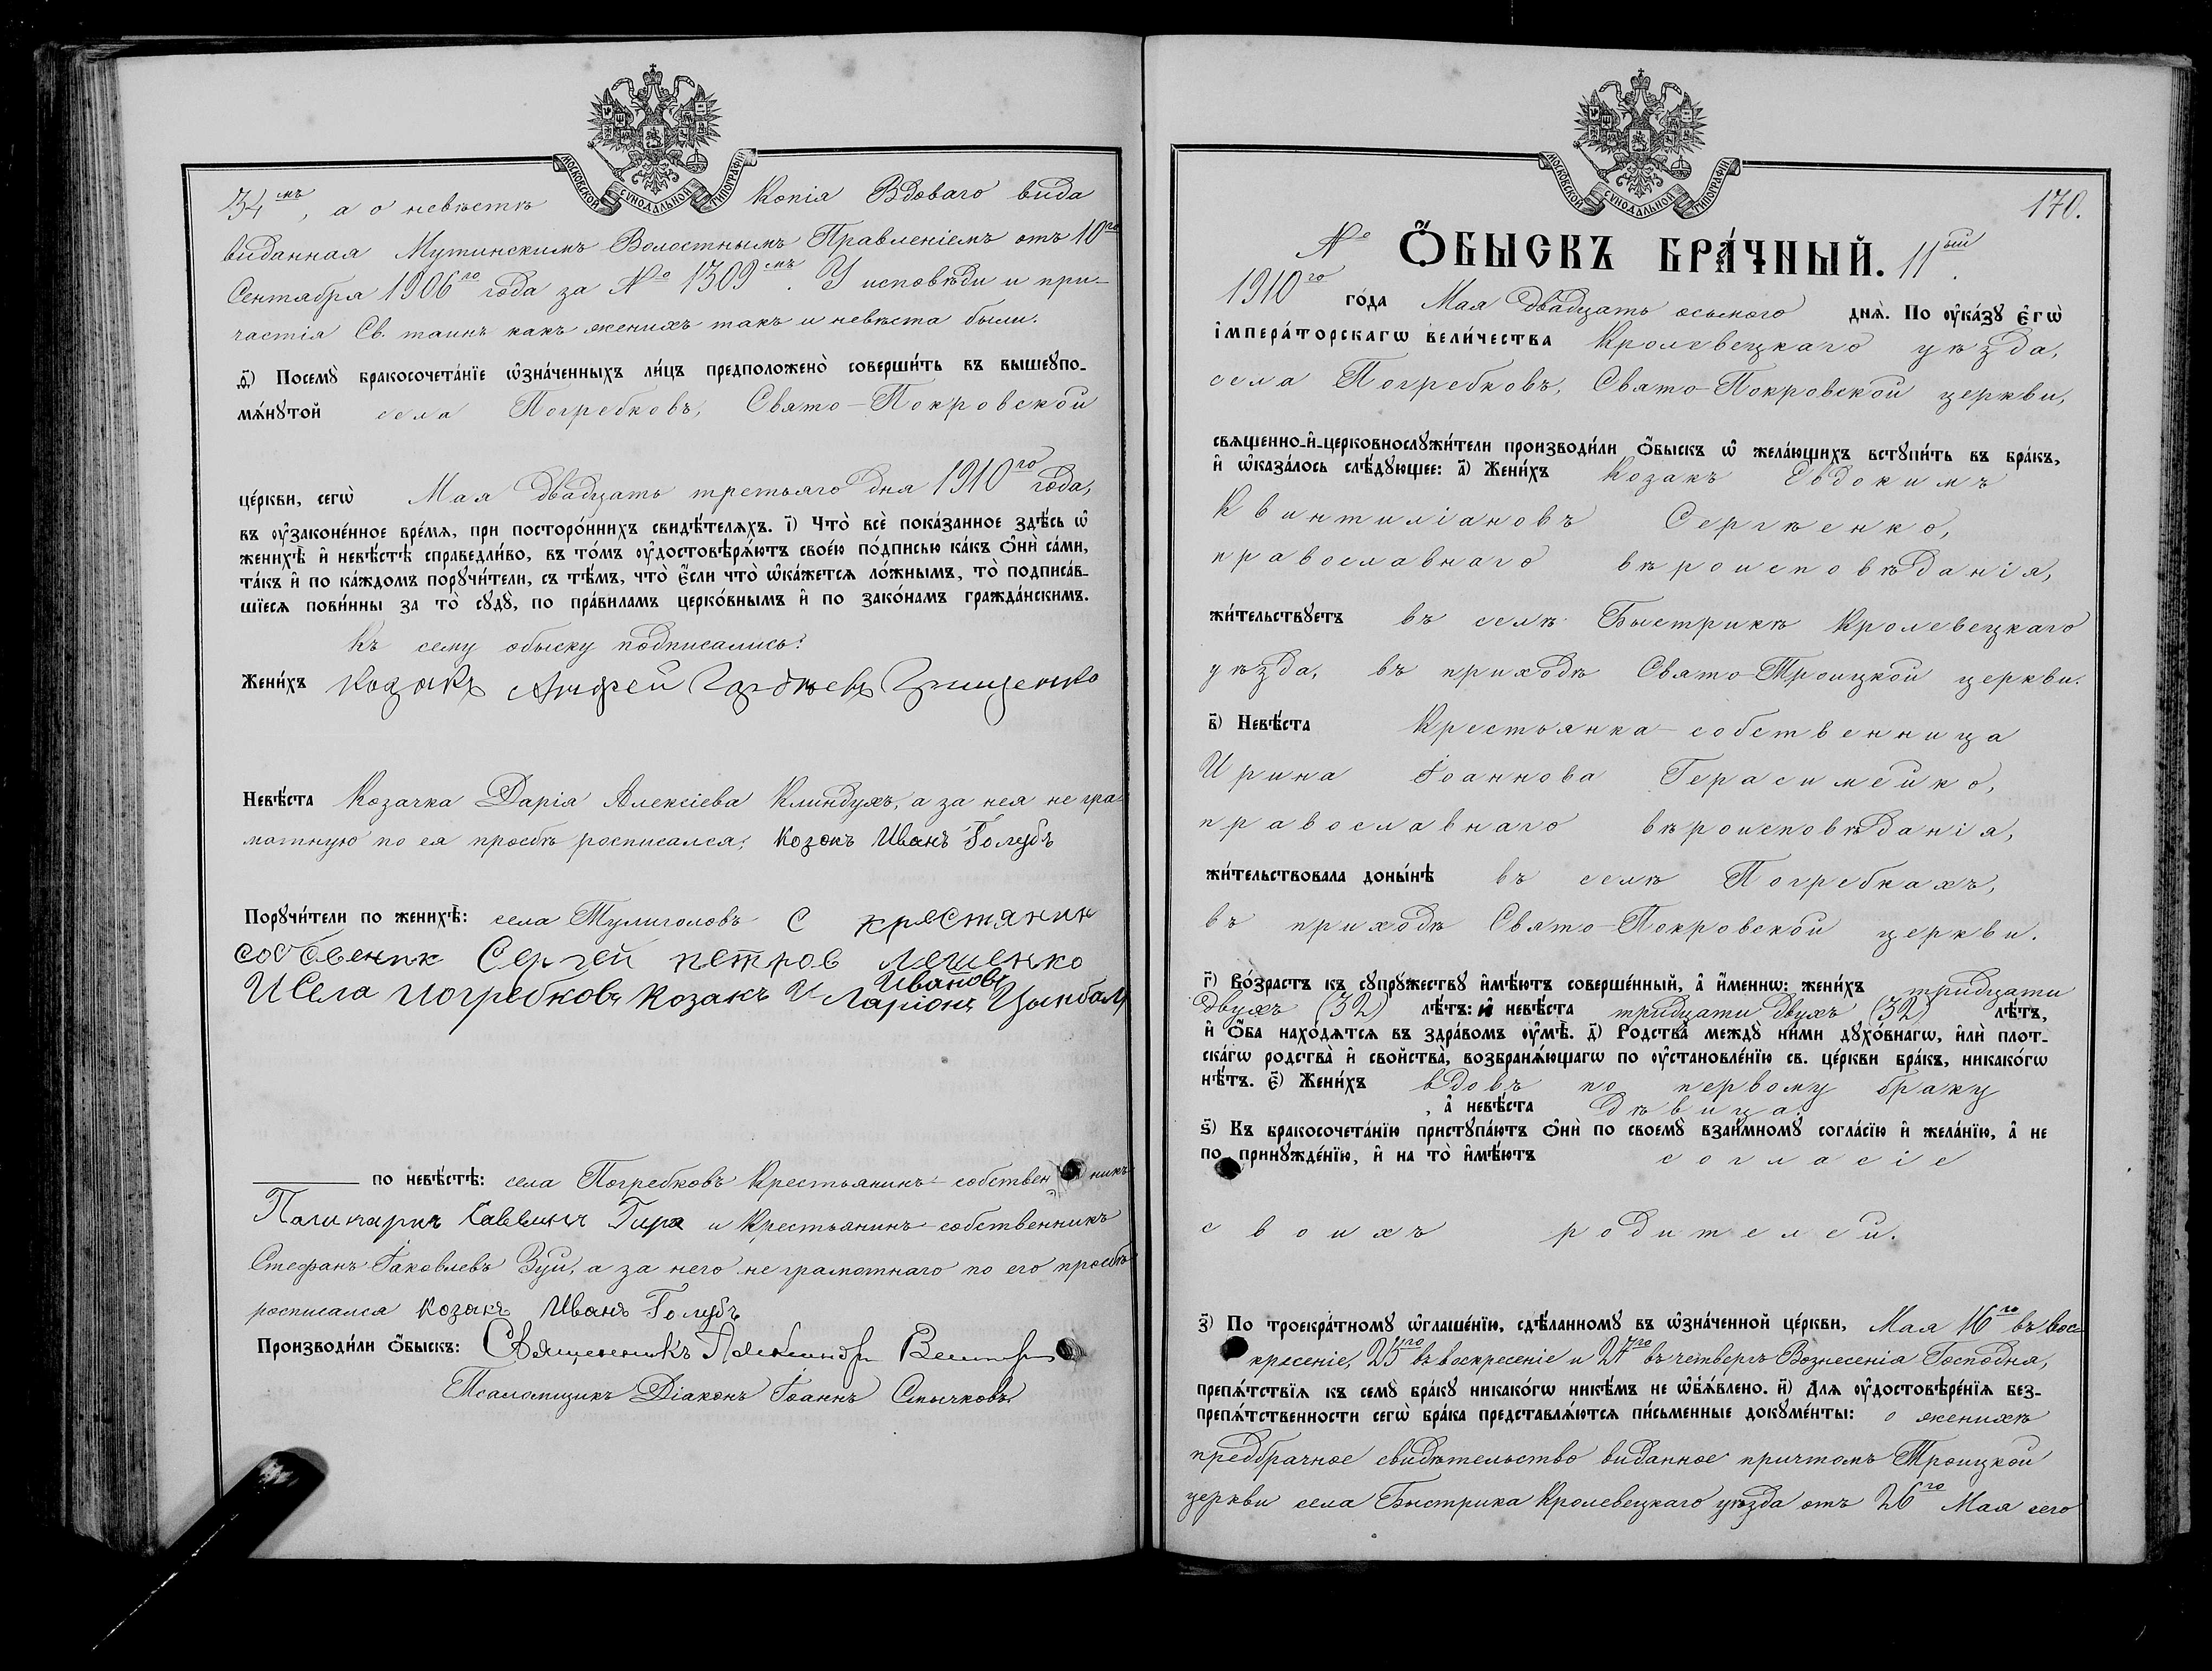 МОСКОВСКОЙ СѴНОДАЛЬНОЙ ТИПОГРАФІИ
34мъ, а о невѣстѣ Копія Вдоваго вида
виданная Мутинскимъ Волостнымъ Правленіемъ отъ 10го
Сентября 1906го года за № 1309мъ. У исповѣди и при-
частія Св. таинъ какъ женихъ такъ и невѣста были.
д҃) Посемꙋ̀ бракосочета́нїе ѡ҆зна́ченныхъ ли́цъ предположено̀ соверши́ть въ вышеꙋпо-
мѧ́нꙋтой села Погребковъ, Свято-Покровской
це́ркви, сегѡ̀ Мая двадцать третьяго дня 1910го года,
въ ᲂу҆зако́ненное вре́мѧ, при посторо́ннихъ свидѣ́телѧхъ. і҃) Что̀ всѐ пока́занное здѣ́сь ѡ҆
женихѣ̀ и҆ невѣ́стѣ справедли́во, въ то́мъ ᲂу҆достовѣрѧ́ютъ свое́ю по́дписью ка́къ ѻ҆нѝ са́ми,
та́къ и҆ по ка́ждомъ порꙋчи́тели, съ тѣ́мъ, что̀ є҆́сли что̀ ѡ҆ка́жетсѧ ло́жнымъ, то̀ подписа́в-
шїесѧ пови́нны за то̀ сꙋдꙋ̀, по пра́виламъ церко́внымъ и҆ по зако́намъ гражда́нскимъ.
Къ сему обыску подписались:
Жени́хъ козакъ Андрей Гордѣевъ Грищенко
Невѣ́ста Козачка Дарія Алексіева Клиндухъ, а за нея не гра-
мотную по ея просьбѣ росписался; козакъ Иванъ Голубъ
Порꙋчи́тели по женихѣ̀: села Тулиголовъ С крестянин
собсвеник Сергей петров Лешенко
И Села погребковъ козакъ И Ларіонъ Ивановъ Цымбалъ
по невѣ́стѣ: села Погребковъ Крестьянинъ-собственникъ
Поликарпъ Саввинъ Гира и Крестьянинъ-собственникъ
Стефанъ Іаковлевъ Зуй, а за него не грамотнаго по его просьбѣ
росписался козакъ Иванъ Голубъ
Производи́ли ѻ҆́быскъ: Священникъ Александръ
Псаломщикъ Діаконъ Іоаннъ Смычковъ
МОСКОВСКОЙ СѴНОДАЛЬНОЙ ТИПОГРАФІИ
170.
№ Ѻ҆́БЫСКЪ БРА́ЧНЫЙ. 11ый.
1910го го́да Мая двадцать осьмого днѧ̀. По ᲂу҆ка́зꙋ є҆гѡ̀
і҆мпера́торскагѡ вели́чества Кролевецкаго уѣзда,
села Погребковъ, Свято-Покровской церкви,
свѧщенно-и҆-церковнослꙋжи́тели производи́ли ѻ҆́быскъ ѡ҆ жела́ющихъ встꙋпи́ть въ бра́къ,
и҆ ѡ҆каза́лось слѣ́дꙋющее: а҃) Жени́хъ козакъ Евдокимъ
Квинтиліановъ Сергѣенко,
православнаго вѣроисповѣданія,
жи́тельствꙋетъ въ селѣ Быстрикѣ Кролевецкаго
уѣзда, въ приходѣ Свято-Троицкой церкви.
в҃) Невѣ́ста Крестьянка-собственница
Ирина Іоаннова Герасимейко,
православнаго вѣроисповѣданія,
жи́тельствовала доны́нѣ въ селѣ Погребкахъ,
въ приходѣ Свято-Покровской церкви.
г҃) Во́зрастъ къ сꙋпрꙋ́жествꙋ и҆мѣ́ютъ соверше́нный, а҆ и҆́меннѡ: жени́хъ тридцати
двухъ (32) лѣ́тъ: и҆ невѣ́ста тридцати двухъ (32) лѣ́тъ,
и҆ ѻ҆́ба нахо́дѧтсѧ въ здра́вомъ ᲂу҆мѣ̀. д҃) Родства̀ междꙋ̀ ни́ми дꙋхо́внагѡ, и҆лѝ плот-
ска́гѡ родства̀ и҆ свойства̀, возбранѧ́ющагѡ по ᲂу҆становле́нїю св. це́ркви бра́къ, никако́гѡ
нѣ́тъ. є҃) Жени́хъ вдовъ по первому браку
, а҆ невѣ́ста дѣвица.
ѕ҃) Къ бракосочета́нїю пристꙋпа́ютъ ѻ҆нѝ по своемꙋ̀ взаи́мномꙋ согла́сїю и҆ жела́нїю, а҆ не
по принꙋжде́нїю, и҆ на то̀ и҆мѣ́ютъ согласіе
своихъ родителей.
з҃) По троекра́тномꙋ ѡ҆глаше́нїю, сдѣ́ланномꙋ въ ѡ҆зна́ченной це́ркви, Мая 16го въ вос-
кресеніе, 23го въ воскресеніе и 27го въ четвергъ Вознесенія Господня,
препѧ́тствїѧ къ семꙋ̀ бра́кꙋ никако́гѡ никѣ́мъ не ѡ҆б̾ѧ́влено. и҃) Длѧ ᲂу҆достовѣре́нїѧ без-
препѧ́тственности сегѡ̀ бра́ка представлѧ́ютсѧ пи́сьменные докꙋме́нты: о женихѣ
предбрачное свидѣтельство виданное причтомъ Троицкой
церкви села Быстрика Кролевецкаго уѣзда отъ 26го Мая сего